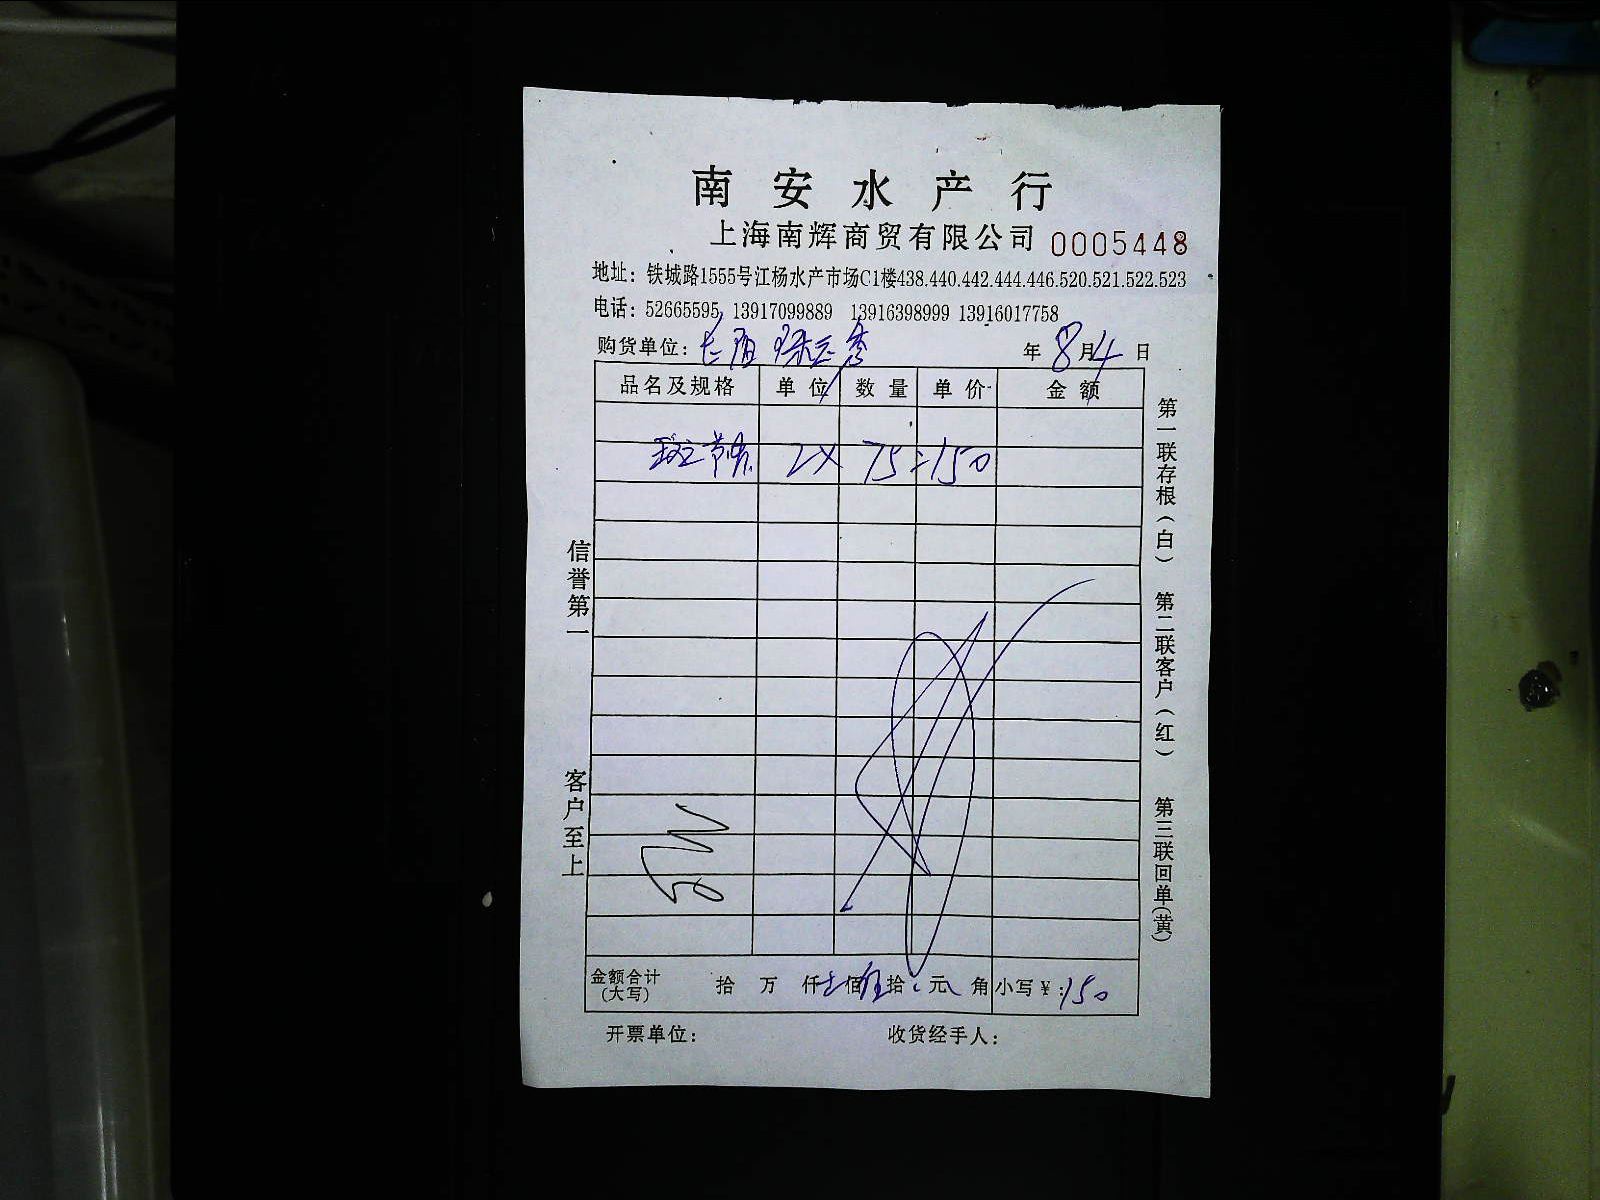 南安水产行
上海南辉商贸有限公司 0005448
地址：铁城路1555号江杨水产市场C1楼438.440.442.444.446.520.521.522.523
电话：52665595 13917099889 13916398999 13916017758
购货单位： 年8月4日
品名及规格 单位 数量 单价 金额
斑节虾 2× 75=150
信誉第一
客户至上
第一联存根（白） 第二联客户（红） 第三联回单（黄）
金额合计（大写） 拾 万 仟 佰 拾 元 角 小写￥：150
开票单位： 收货经手人：